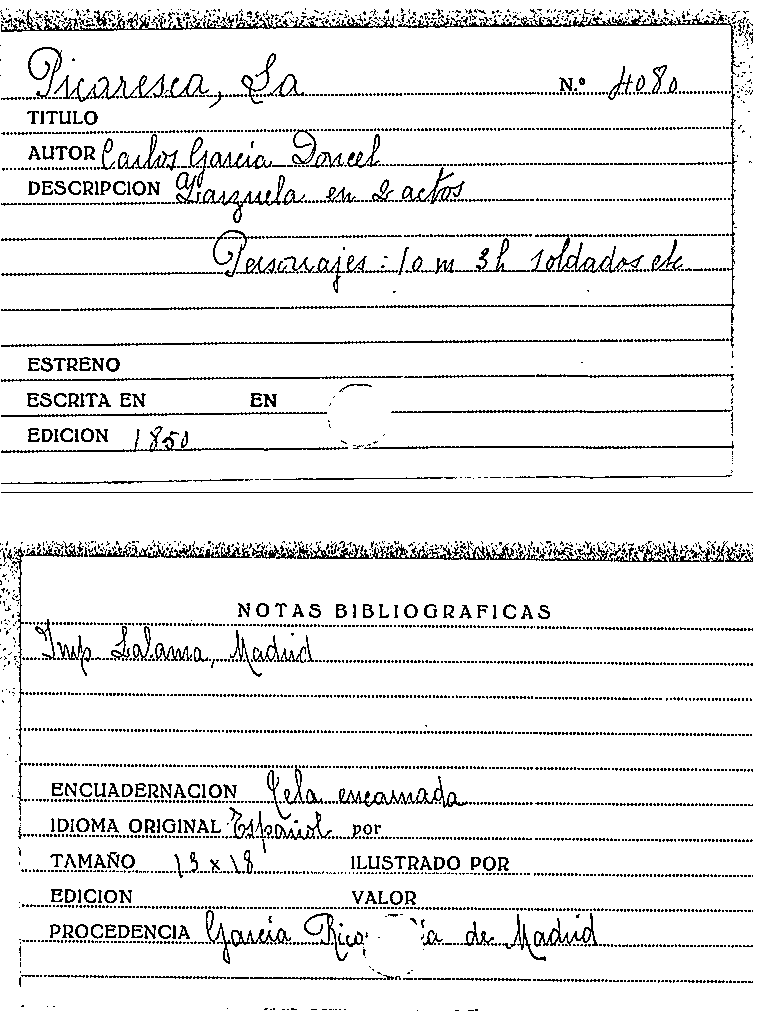 Picaresca, La N.º 4080
TITULO
AUTOR Carlos García Doncel
DESCRIPCION Zarzuela en 2 actos
Personajes : 10 m 3h soldados etc
ESTRENO
ESCRITA EN EN
EDICION 1850
NOTAS BIBLIOGRAFICAS
Imp Lalama, Madrid
ENCUADERNACION Tela encarnada
IDIOMA ORIGINAL Español por
TAMAÑO 13 x 18 ILUSTRADO POR
EDICION VALOR
PROCEDENCIA García Rico de Madrid